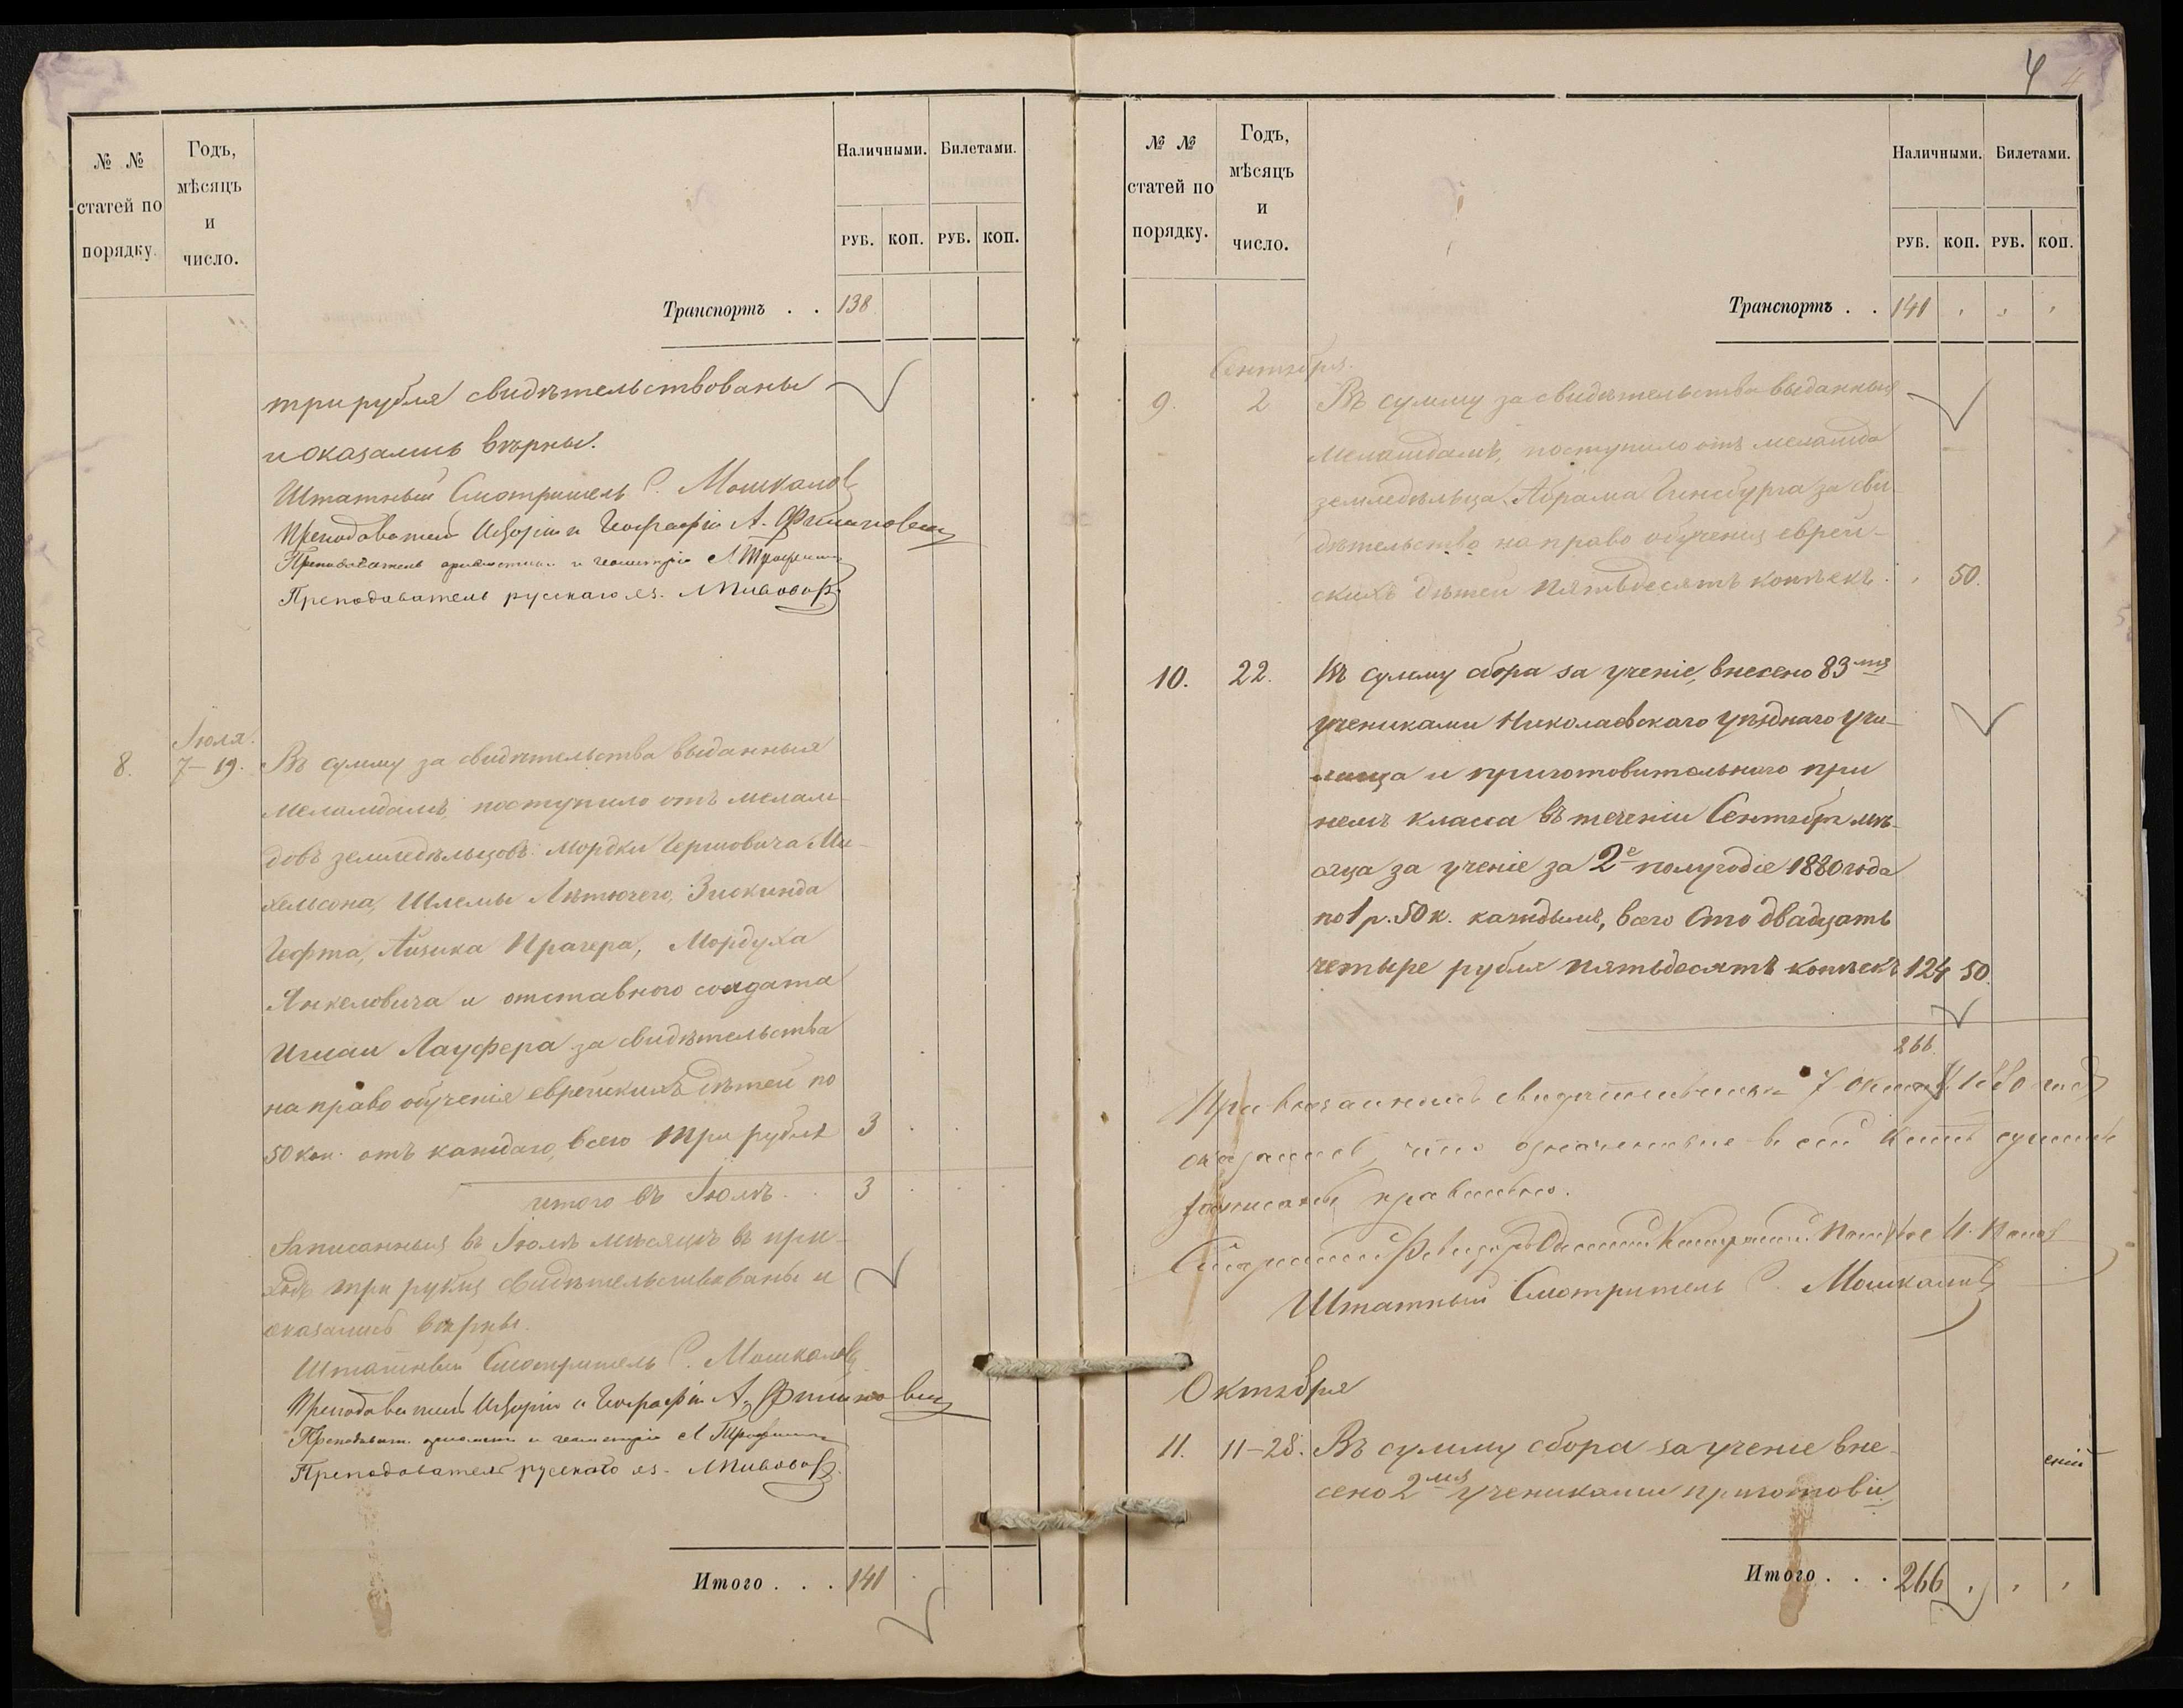 № №
статей по
порядку.
Годъ,
мѣсяцъ
и
число.
Наличными.
Билетами.
РУБ. КОП. РУБ. КОП.
Транспортъ . . 138
три рубля свидѣтельствованы
и оказались вѣрны.
Штатный Смотритель С. Мошкалов
Преподаватель Исторіи и Географіи А. Филиппович
Преподаватель ариѳметики и геометріи
Преподаватель русскаго яз.
Іюля.
8. 7–19. Въ сумму за свидѣтельства выданныя
меламдамъ, поступило отъ мелам-
довъ земледѣльцовъ: Мордки Гершовича Ми-
хельсона, Шлемы Лѣтючего, Зискинда
Гефта, Айзика Прагера, Мордуха
Янкеловича и отставного солдата
Лауфера за свидѣтельства
на право обученія еврейскихъ дѣтей по
50 коп. отъ каждаго, всего три рубля 3
итого въ Іюлѣ . . 3
Записанныя въ Іюлѣ мѣсяцѣ въ при-
ходъ три рубля свидѣтельствованы и
оказались вѣрны.
Штатный Смотритель С. Мошкалов
Преподаватель Исторіи и Географіи А. Филиппович
Преподават. ариѳмети и геометріи
Преподаватель русскаго яз.
Итого . . . 141
4
№ №
статей по
порядку.
Годъ,
мѣсяцъ
и
число.
Наличными.
Билетами.
РУБ. КОП. РУБ. КОП.
Транспортъ . . 141
Сентября.
9. 2 Въ сумму за свидѣтельства выданныя
меламдамъ, поступило отъ меламда
земледѣльца Абрама Гинсбурга за сви-
дѣтельство на право обученія еврей-
скихъ дѣтей пятьдесятъ копѣекъ. 50.
10. 22. Въ сумму сбора за ученіе, внесено 83мя
учениками Николаевскаго уѣзднаго учи-
лища и приготовительнаго при
немъ класса въ теченіи Сентября мѣ-
сяца за ученіе за 2е полугодіе 1880 года
по 1 р. 50 к. каждымъ, всего сто двадцать
четыре рубля пятьдесятъ копѣекъ 124 50.
266
При внезапномъ свидѣтельствѣ 7 Октяб. 1880 года
оказалось, что означенныя в сей книгѣ суммы
записаны правильно.
Штатный Смотритель С. Мошкалов
Октября
11. 11–28. Въ сумму сбора за ученіе вне-
сено 2мя учениками приготови
Итого . . . 266